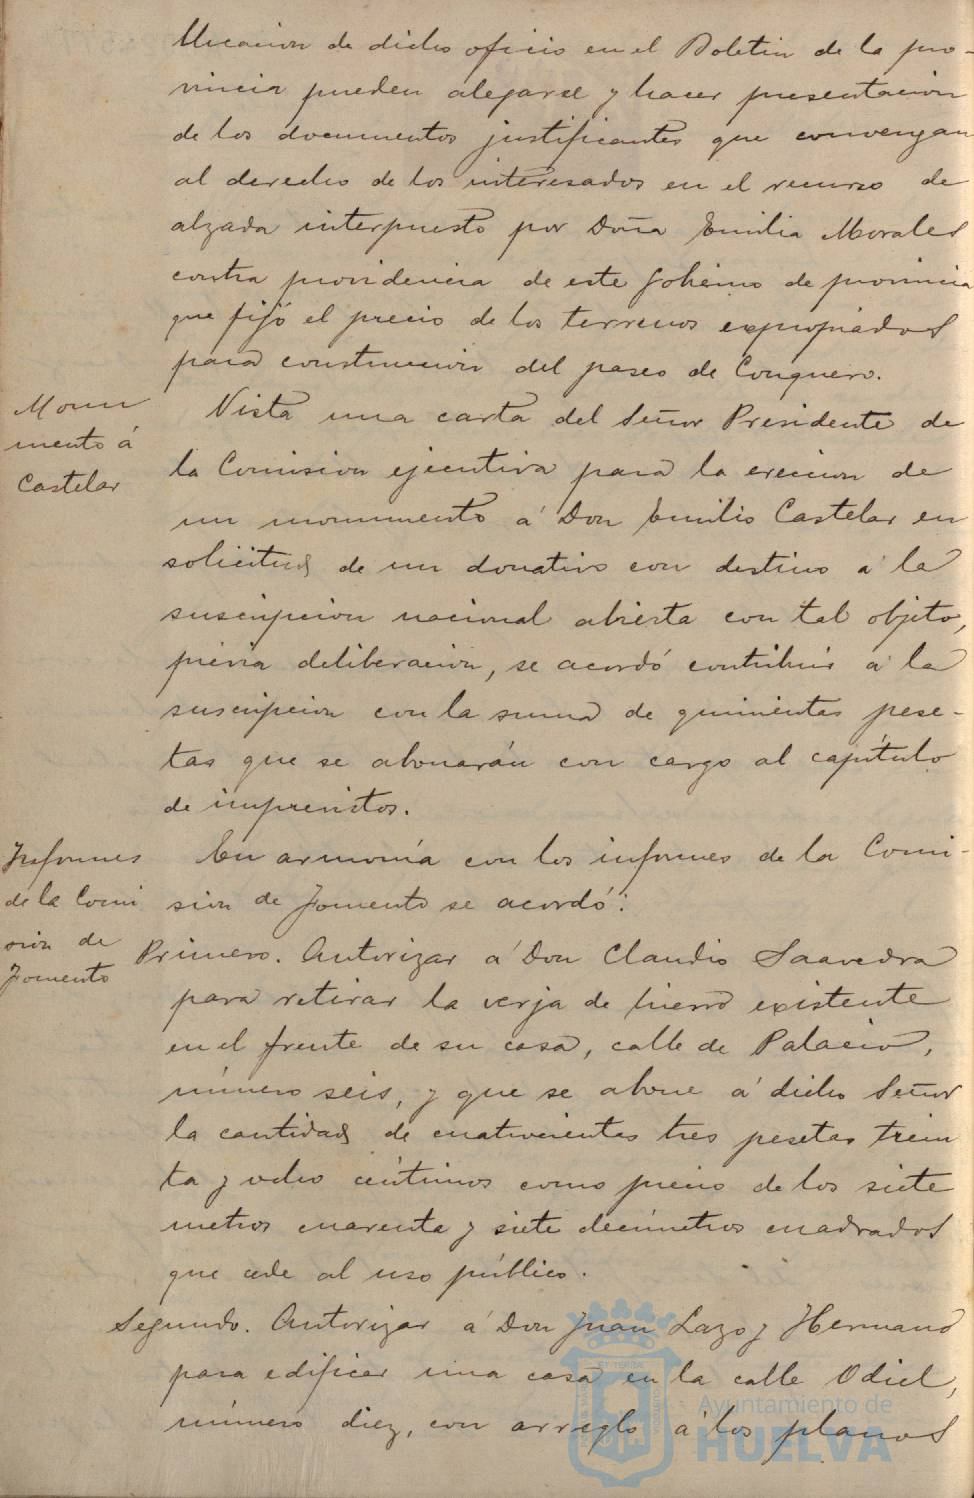 blicacion de dicho oficio en el Boletin de la pro-
vincia pueden alegarse y hacer presentacion
de los documentos justificantes que convengan
al derecho de los interesados en el recurso de
alzada interpuesto por Doña Emilia Morales
contra providencia de este Gobierno de provincia
que fijó el precio de los terrenos expropiados
para construccion del paseo de Conquero.
Monu
mento á
Castelar
Vista una carta del Señor Presidente de
la Comision ejecutiva para la ereccion de
un monumento á Don Emilio Castelar en
solicitud de un donativo con destino á la
suscripcion nacional abierta con tal objeto,
previa deliberacion, se acordó contribuir á la
suscripcion con la suma de quinientas pese-
tas que se abonarán con cargo al capítulo
de imprevistos.
Informes
de la Comi
sion de
Fomento
En armonía con los informes de la Comi-
sion de Fomento se acordó:
Primero. Autorizar á Don Claudio Saavedra
para retirar la verja de hierro existente
en el frente de su casa, calle de Palacio,
número seis, y que se abone á dicho Señor
la cantidad de cuatrocientas tres pesetas trein
ta y ocho céntimos como precio de los siete
metros cuarenta y siete decímetros cuadrados
que cede al uso público.
Segundo. Autorizar á Don Juan Lazo y Hernand
para edificar una casa en la calle Odiel,
número diez, con arreglo á los planos
Ayuntamiento de
HUELVA